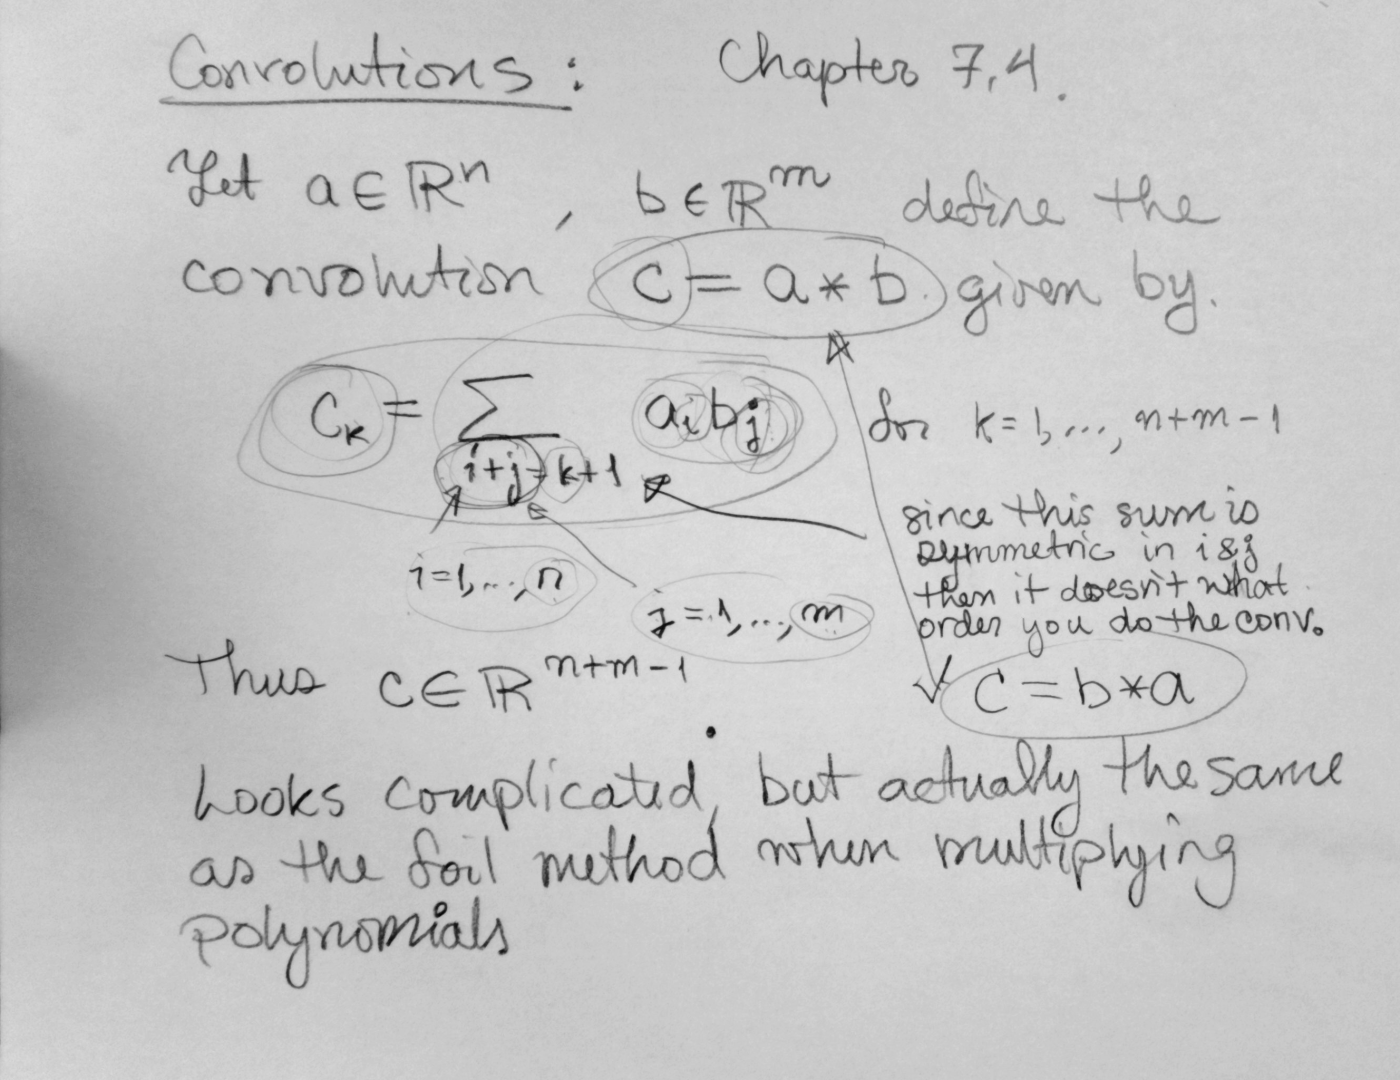 Convolutions: Chapter 7.4.
Let a ∈ ℝⁿ, b ∈ ℝᵐ define the
convolution c = a * b given by.
c_k = Σ_{i+j=k+1} a_i b_j for k=1,...,n+m-1
i=1,...,n
j=1,...,m
since this sum is
symmetric in i & j
then it doesn't what
order you do the conv.
Thus c ∈ ℝ^{n+m-1}
c = b * a
Looks complicated, but actually the same
as the foil method when multiplying
polynomials